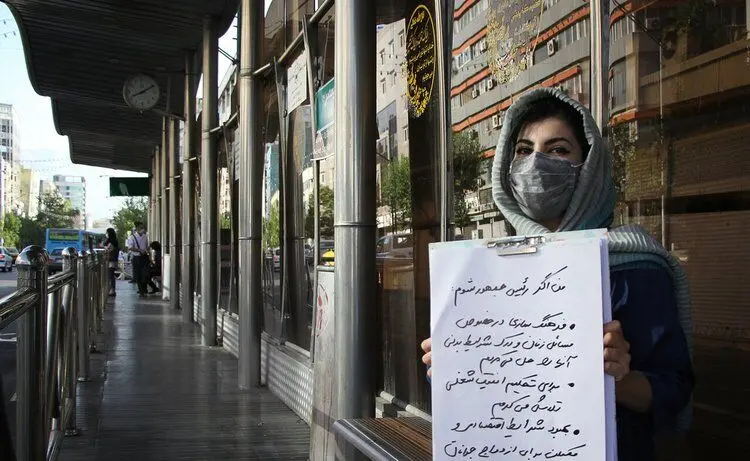 من اگر رئیس جمهور شوم:
• فرهنگ سازی در خصوص
مسائل زنان و درک شرایط بدنی
آنها را می کردم
• برای تنظیم امنیت شغلی
تلاش می کردم
• بهبود شرایط اقتصادی و
ممکن برای ازدواج جوانان